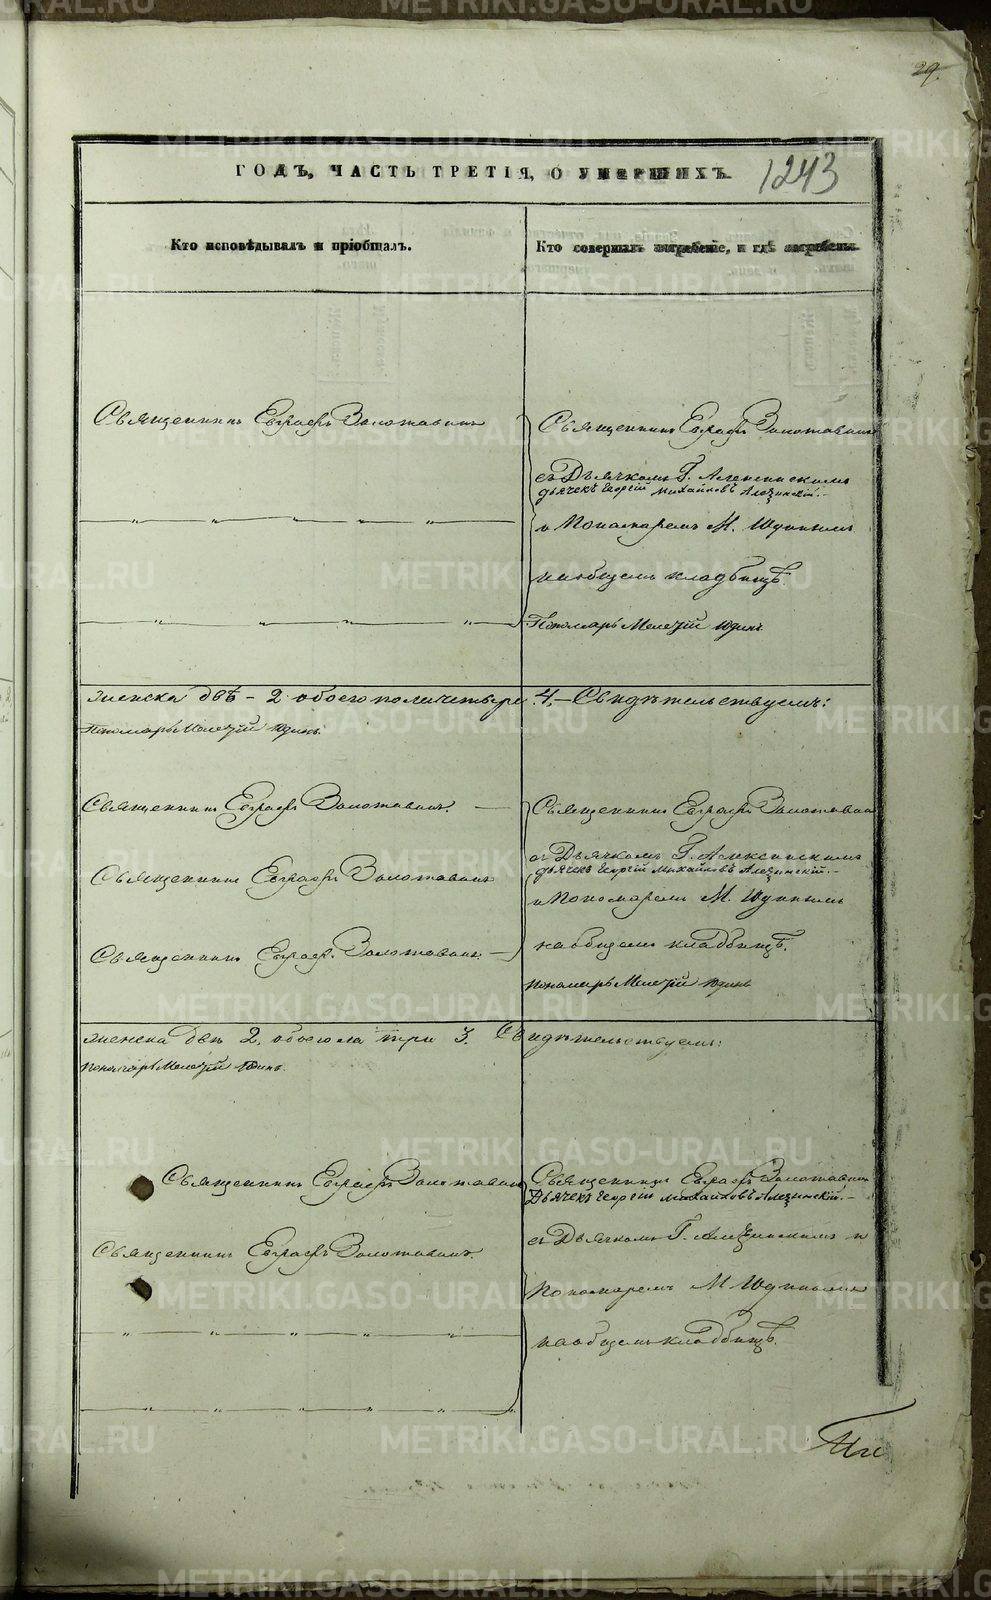 29.
ГОДЪ, ЧАСТЬ ТРЕТІЯ, О УМЕРШИХЪ.
1243
Кто исповѣдывалъ и пріобщалъ.
Кто совершалъ погребеніе, и гдѣ погребены.
Священникъ Евграфъ Золотавинъ
Священникъ Евграфъ Золотавинъ
съ Дьячкомъ Г.
дьячекъ Георгій Михайловъ
и Пономаремъ М. Юдинымъ
на общемъ кладбищѣ.
Пономарь Мелетій Юдинъ
женска двѣ – 2 обоего пола четыре 4. – Свидѣтельствуемъ:
Пономарь Мелетій Юдинъ.
Священникъ Евграфъ Золотавинъ. —
Священникъ Евграфъ Золотавинъ
Священникъ Евграфъ Золотавинъ
Священникъ Евграф. Золотавинъ. —
Священникъ Евграфъ Золотавин
съ Дьячкомъ Г.
дьячекъ Георгій Михайловъ
и Пономаремъ М. Юдинымъ
на общемъ кладбищѣ.
Пономарь Мелетій Юдинъ
женска двѣ 2. обоего пола три 3. Свидѣтельствуемъ:
Пономарь Мелетій Юдинъ.
Священникъ Евграфъ Золотавинъ
Священникъ Евграфъ Золотавинъ.
Священникъ Евграфъ Золотавинъ
Дьячекъ Георгій Михайловъ
съ Дьячкомъ Г. и
Пономаремъ М Юдинымъ
на общемъ кладбищѣ.
METRIKI.GASO-URAL.RU